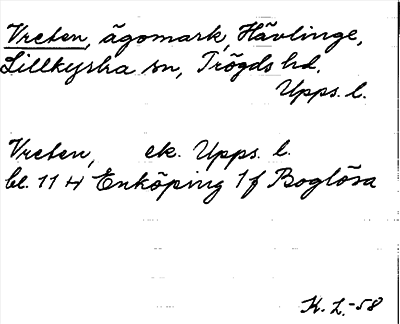 Vreten, ägomark, Hävlinge,
Lillkyrka sn, Trögds hd.
Upps. l.
Vreten, ek. Upps. l.
bl. 11 H Enköping 1f Boglösa
K. L. -58